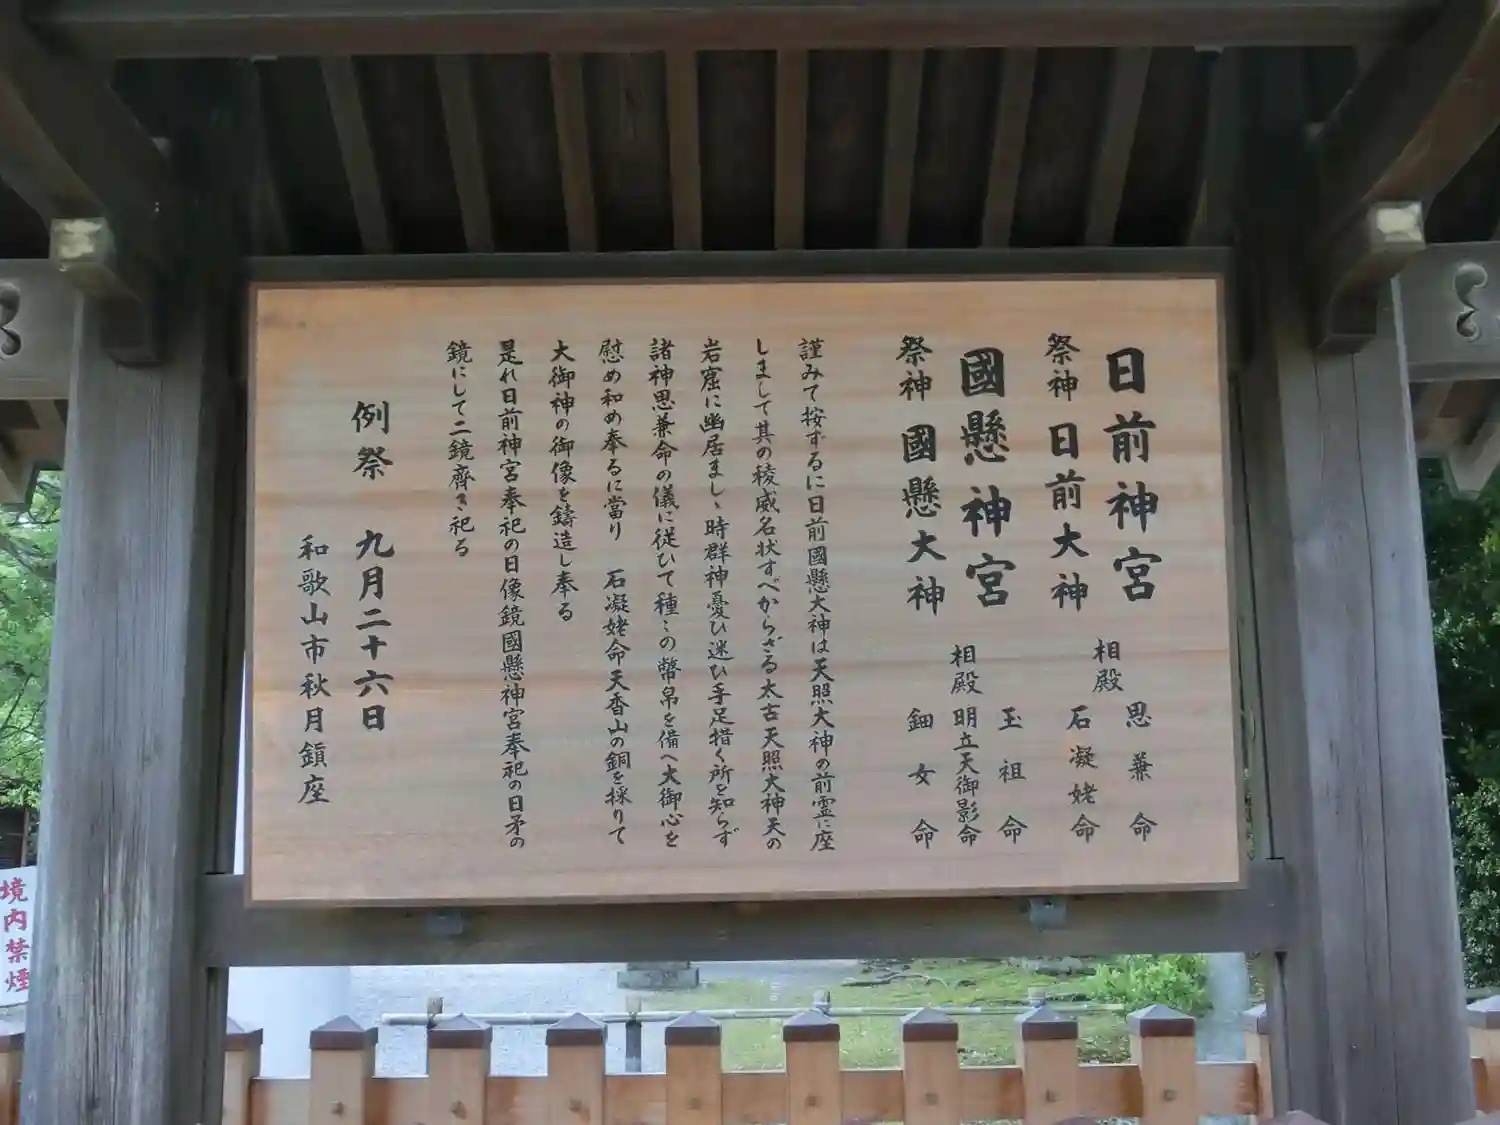 日前神宮
祭神 日前大神
相殿 思兼命
石凝姥命
國懸神宮
祭神 國懸大神
相殿 玉祖命
明立天御影命
鈿女命
謹みて按ずるに日前國懸大神は天照大神の前霊に座
しまして其の稜威名状すべからざる太古天照大神天の
岩窟に幽居ましゝ時群神憂ひ迷ひ手足措く所を知らず
諸神思兼命の儀に従ひて種〻の幣帛を備へ大御心を
慰め和め奉るに當り 石凝姥命天香山の銅を採りて
大御神の御像を鑄造し奉る
是れ日前神宮奉祀の日像鏡國懸神宮奉祀の日矛の
鏡にして二鏡齊き祀る
例祭 九月二十六日
和歌山市秋月鎮座
境内禁煙